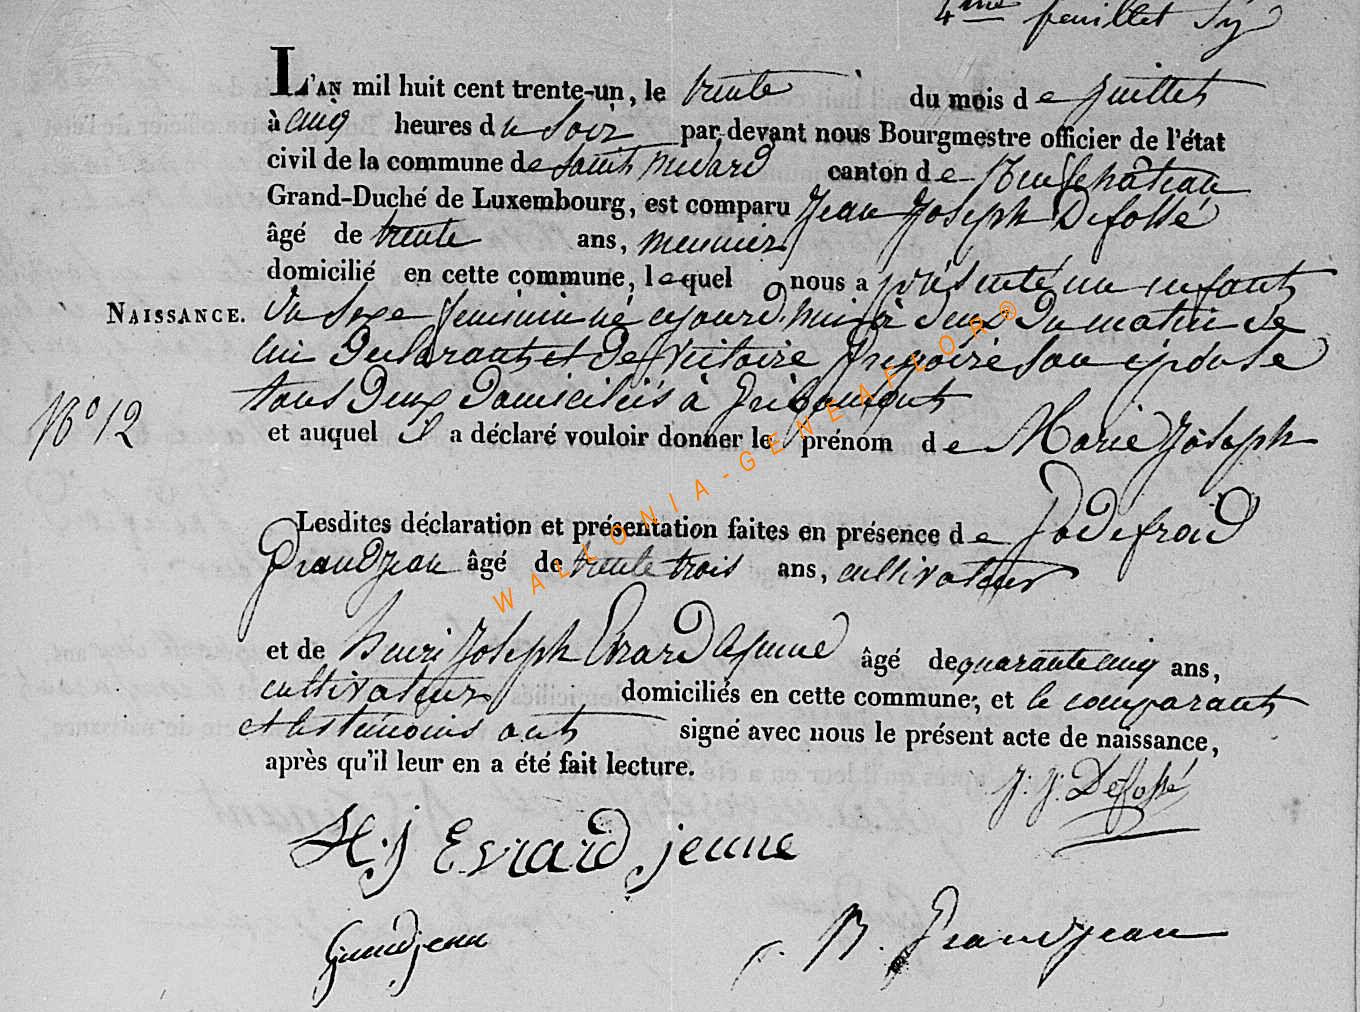 4me feuillet Sy
L'AN mil huit cent trente-un, le trente du mois de juillet
à cinq heures du soir par devant nous Bourgmestre officier de l'état
civil de la commune de Saint Médard canton de Neufchâteau
Grand-Duché de Luxembourg, est comparu Jean Joseph Defossé
âgé de trente ans, meunier
domicilié en cette commune, lequel nous a présenté un enfant
NAISSANCE. du sexe feminin né ajourd'hui à deux du matin de
lui declarant et de Victoire Grégoire son épouse
tous deux domiciliés à Gribomont
No 12 et auquel il a déclaré vouloir donner le prénom de Marie Joseph
Lesdites déclaration et présentation faites en présence de Godefroid
Grandjean âgé de trente trois ans, cultivateur
et de henri Joseph Evrard Jeune âgé de quarante cinq ans,
cultivateur domiciliés en cette commune; et le comparant
et les temoins ont signé avec nous le présent acte de naissance,
après qu'il leur en a été fait lecture.
J. J. Defossé
H. J Evrard jeune
Grandjean
B. Grandjean
WALLONIA-GENEAFLOR®